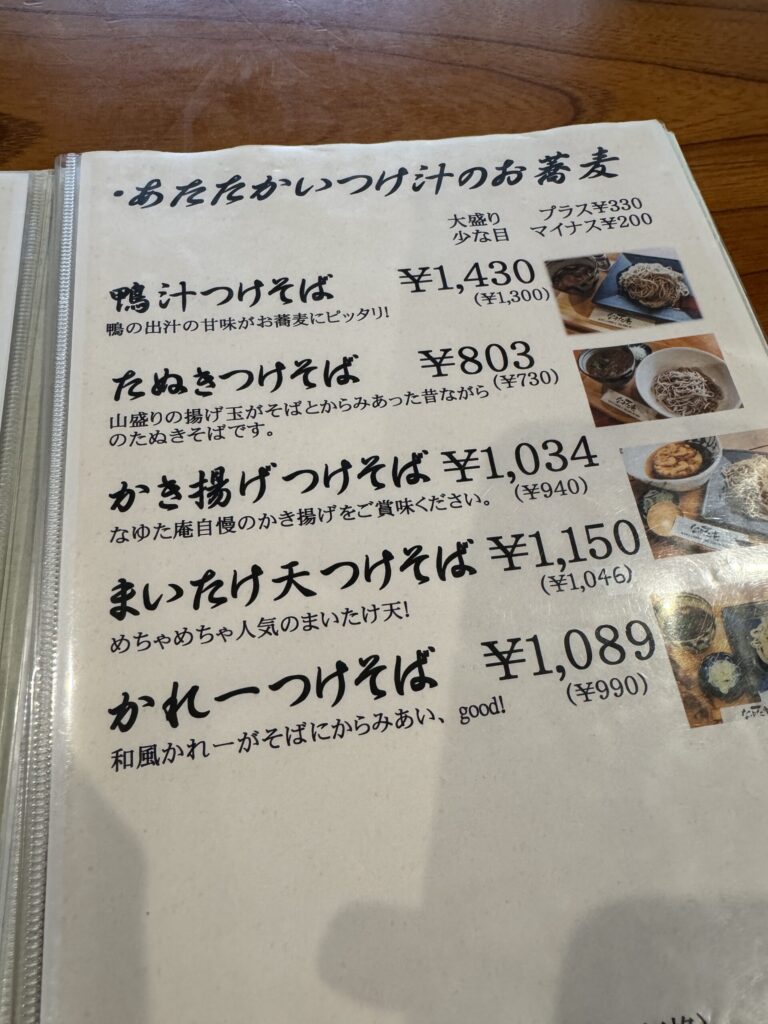 ・あたたかいつけ汁のお蕎麦
大盛り　プラス¥330
少な目　マイナス¥200
鴨汁つけそば　¥1,430
(¥1,300)
鴨の出汁の甘味がお蕎麦にピッタリ!
たぬきつけそば　¥803
(¥730)
山盛りの揚げ玉がそばとからみあった昔ながら
のたぬきそばです。
かき揚げつけそば　¥1,034
(¥940)
なゆた庵自慢のかき揚げをご賞味ください。
まいたけ天つけそば　¥1,150
(¥1,046)
めちゃめちゃ人気のまいたけ天!
かれーつけそば　¥1,089
(¥990)
和風かれーがそばにからみあい、good!